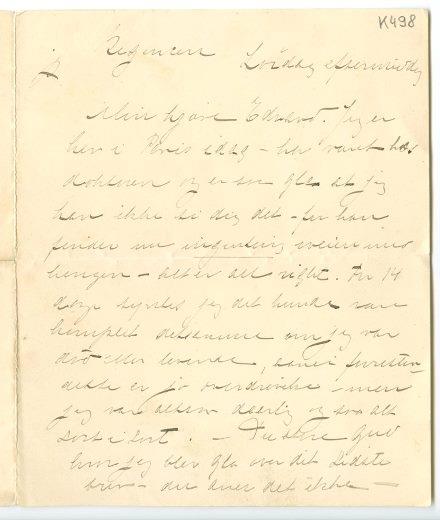 K498
Lördag eftermiddag
Min kjære Edvard. Jeg er
her i Paris idag – har været hos
doktoren og er saa gla at jeg
kan ikke si dig det – for han
finder nu ingenting iveien med
lungen – alt er all right. For 14
dage syntes jeg det kunde være
komplet detsamme om jeg var
död eller levende,
dette er jo overdrivelse men
jeg var altsaa daarlig og saa alt
sort i sort. – Du store Gud
hvor jeg blev gla over dit sidste
brev – du aner det ikke –